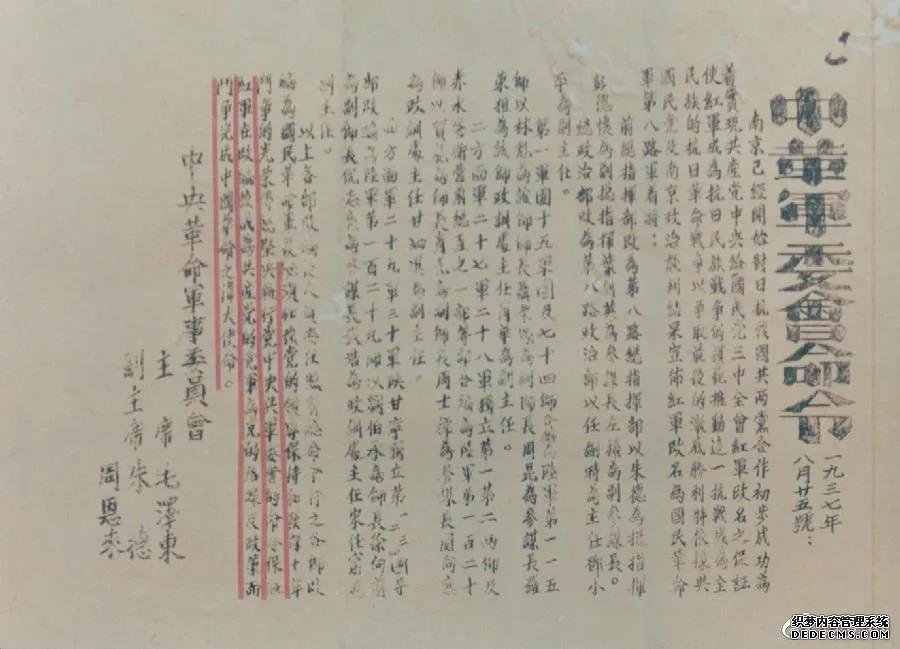 中革軍委會命令
一九三七年
八月廿五號：
南京已經開始對日抗戰國共兩黨合作初步成功為
着實現共產党中央給國民党三中全曾紅軍改名之保証
使紅軍成為抗日民族戰争的模範推動這一抗戰成為全
民族的抗日革命戰争以爭取最後的澈底勝利特依據與
國民党及南京政治談判結果宣佈紅軍改名為國民革命
軍第八路軍着將：
前總指揮部改為第八路總指揮部以朱德為總指揮
彭德懷為副總指揮葉劍英為參謀長左權為副參謀長。
總政治部改為第八路政治部以任弼時為主任鄧小
平為副主任。
第一軍團十五軍團及七十四師合編陸軍第一一五
師以林彪為該師師長聶榮臻為副師長周昆為參謀長羅
榮桓為該師政訓處主任蕭華為副主任。
二方面軍二十七軍二十八軍獨立第一第二兩師及
赤水警衛營前總直之一部等部合編為陸軍第一二十
師以賀龍為師長蕭克為副師長周士第為參謀長關向應
為政訓處主任甘泗淇為副主任。
四方面軍二十九軍三十軍陝甘寧獨立第一二三四等
部改編為陸軍第一百二十九師以劉伯承為師長徐向前
為副師長倪志亮為參謀長張浩為政訓處主任宋任窮為
副主任。
以上各部改編後人員委任照前總命令行之各部改
編為國民革命軍後必須加強党的領導保持和發揚十年
鬥爭的光榮傳統堅決執行党中央與軍委會的命令保証
紅軍在改編後成為共產党的党軍為党的路線及政策而
鬥爭完成中國革命之偉大使命。
中央革命軍事委員會
主席毛澤東
副主席朱德
周恩來
织梦内容管理系统
DEDECMS.COM